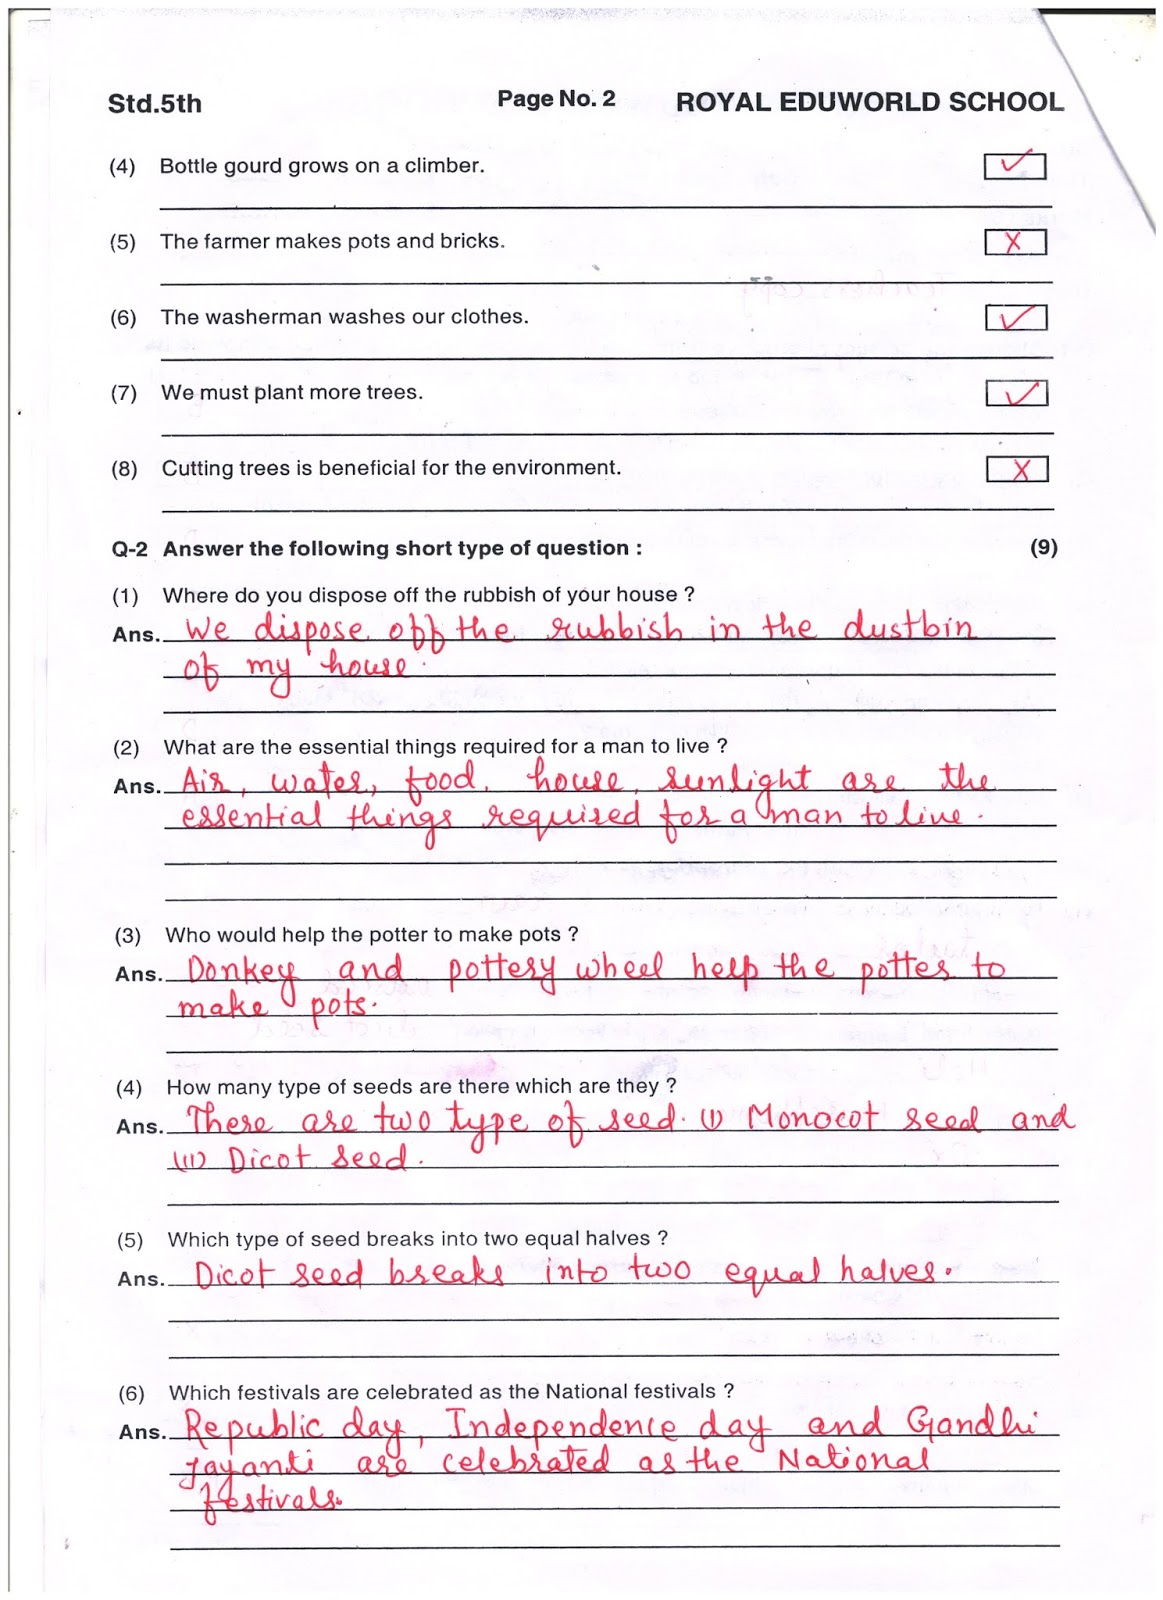 Std.5th Page No. 2 ROYAL EDUWORLD SCHOOL
(4) Bottle gourd grows on a climber. ✓
(5) The farmer makes pots and bricks. X
(6) The washerman washes our clothes. ✓
(7) We must plant more trees. ✓
(8) Cutting trees is beneficial for the environment. X
Q-2 Answer the following short type of question : (9)
(1) Where do you dispose off the rubbish of your house ?
Ans. We dispose off the rubbish in the dustbin
of my house.
(2) What are the essential things required for a man to live ?
Ans. Air, water, food, house, sunlight are the
essential things required for a man to live.
(3) Who would help the potter to make pots ?
Ans. Donkey and pottery wheel help the potter to
make pots.
(4) How many type of seeds are there which are they ?
Ans. There are two type of seed. (I) Monocot seed and
(II) Dicot seed.
(5) Which type of seed breaks into two equal halves ?
Ans. Dicot seed breaks into two equal halves.
(6) Which festivals are celebrated as the National festivals ?
Ans. Republic day, Independence day and Gandhi
Jayanti are celebrated as the National
festivals.